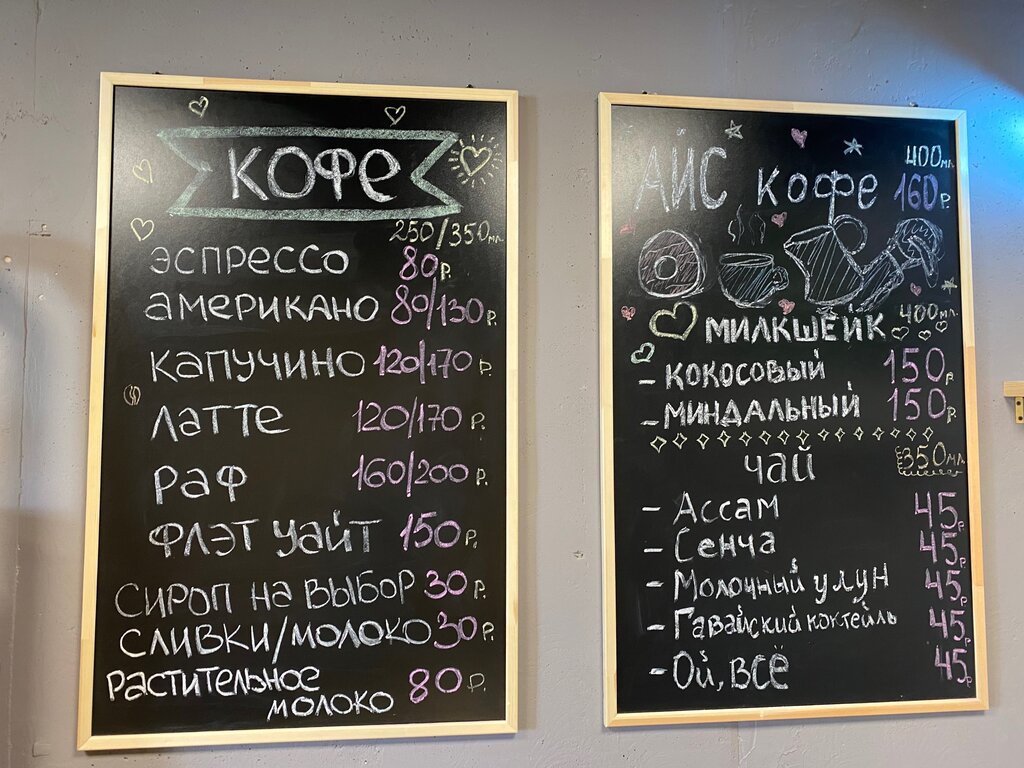 КОФЕ
250/350 мл.
ЭСПРЕССО 80 Р.
АМЕРИКАНО 80/130 Р.
КАПУЧИНО 120/170 Р.
ЛАТТЕ 120/170 Р.
РАФ 160/200 Р.
ФЛЭТ УАЙТ 150 Р.
СИРОП НА ВЫБОР 30 Р.
СЛИВКИ/МОЛОКО 30 Р.
РАСТИТЕЛЬНОЕ
МОЛОКО 80 Р.
400 мл.
АЙС КОФЕ 160 Р.
МИЛКШЕЙК 400 мл.
- КОКОСОВЫЙ 150 Р
- МИНДАЛЬНЫЙ 150 Р
ЧАЙ 350 мл.
- Ассам 45 Р
- Сенча 45 Р
- Молочный улун 45 Р
- Гавайский коктейль 45 Р
- Ой, всё 45 Р